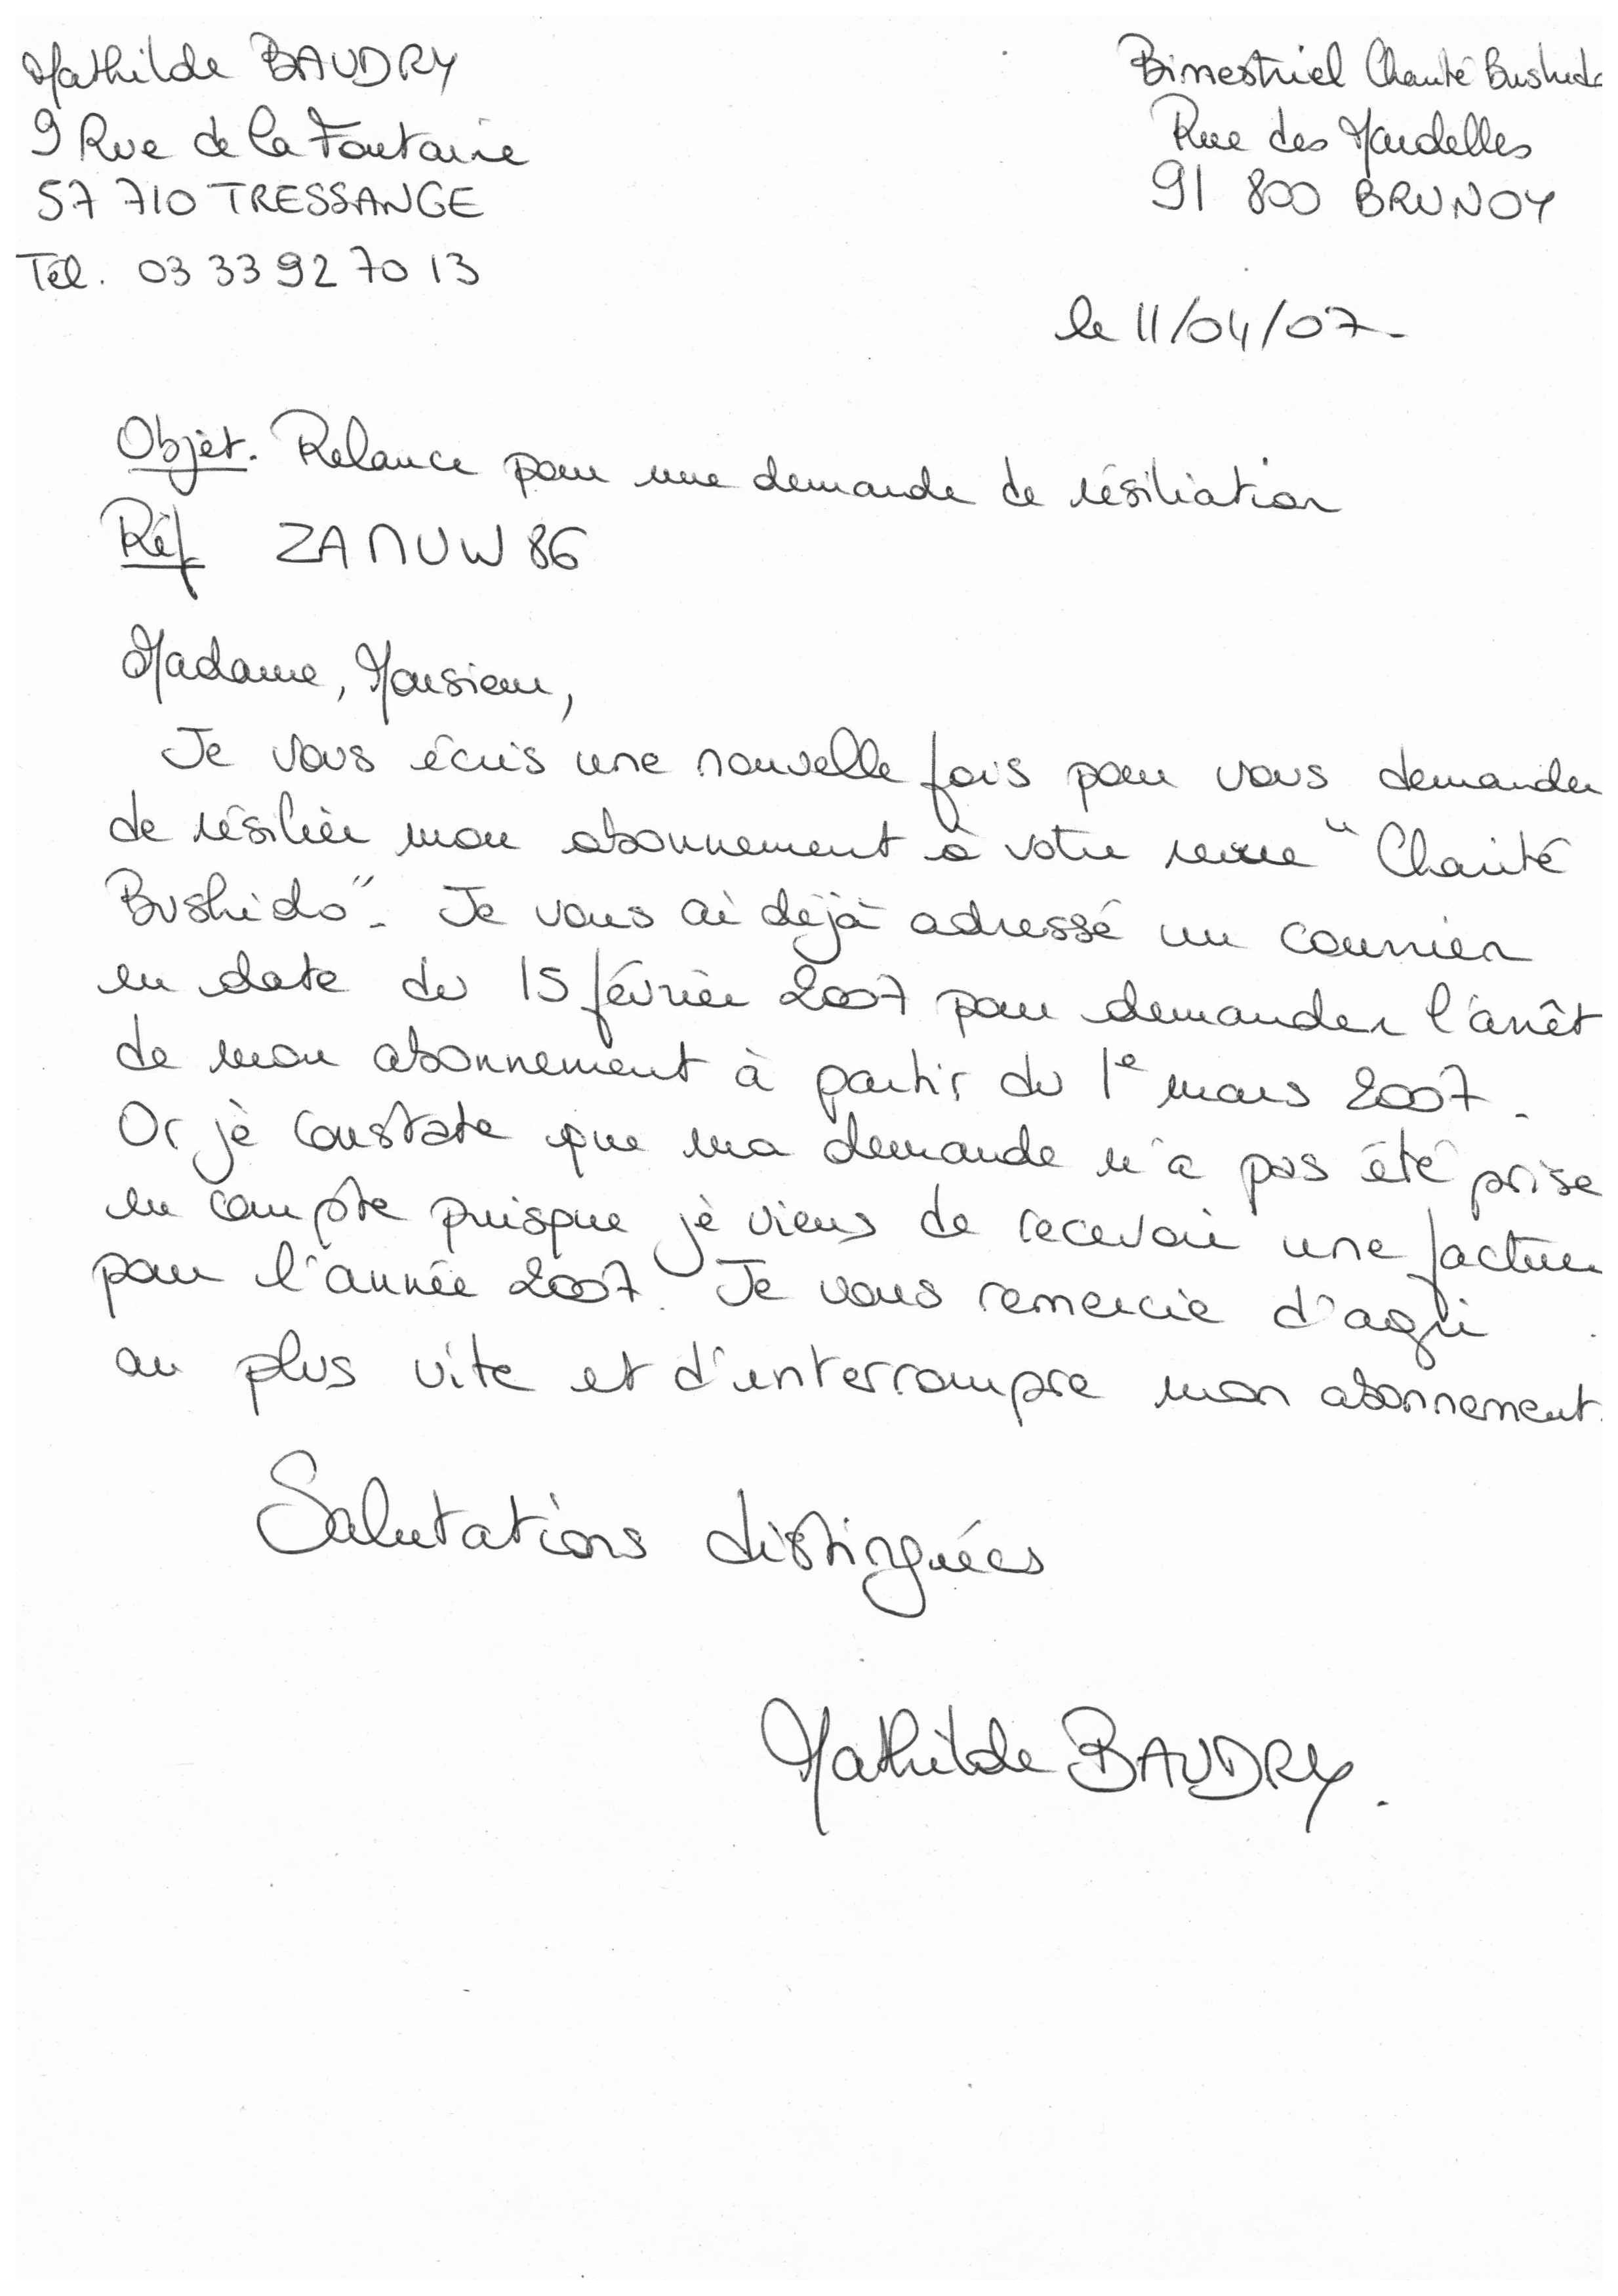 Mathilde BAUDRY
9 Rue de la Fontaine
57 710 TRESSANGE
Tél. 03 33 92 70 13
Bimestriel Charité Bushido
Rue des Mardelles
91 800 BRUNOY
le 11/04/07.
Objet. Relance pour une demande de résiliation
Réf ZAMUW86
Madame, Monsieur,
Je vous écris une nouvelle fois pour vous demander
de résilier mon abonnement à votre revue "Charité
Bushido". Je vous ai déjà adressé un courrier
en date du 15 février 2007 pour demander l'arrêt
de mon abonnement à partir du 1e mars 2007.
Or je constate que ma demande n'a pas été prise
en compte puisque je viens de recevoir une facture
pour l'année 2007. Je vous remercie d'agir
au plus vite et d'interrompre mon abonnement.
Salutations distinguées
Mathilde BAUDRY.